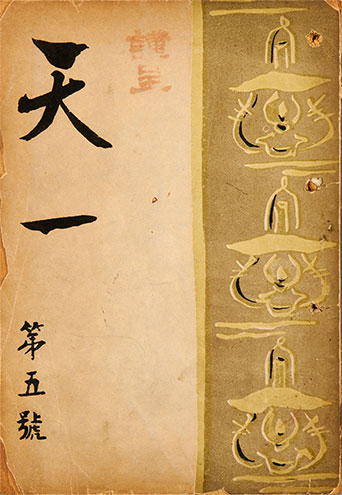 謹呈
天一
第五號